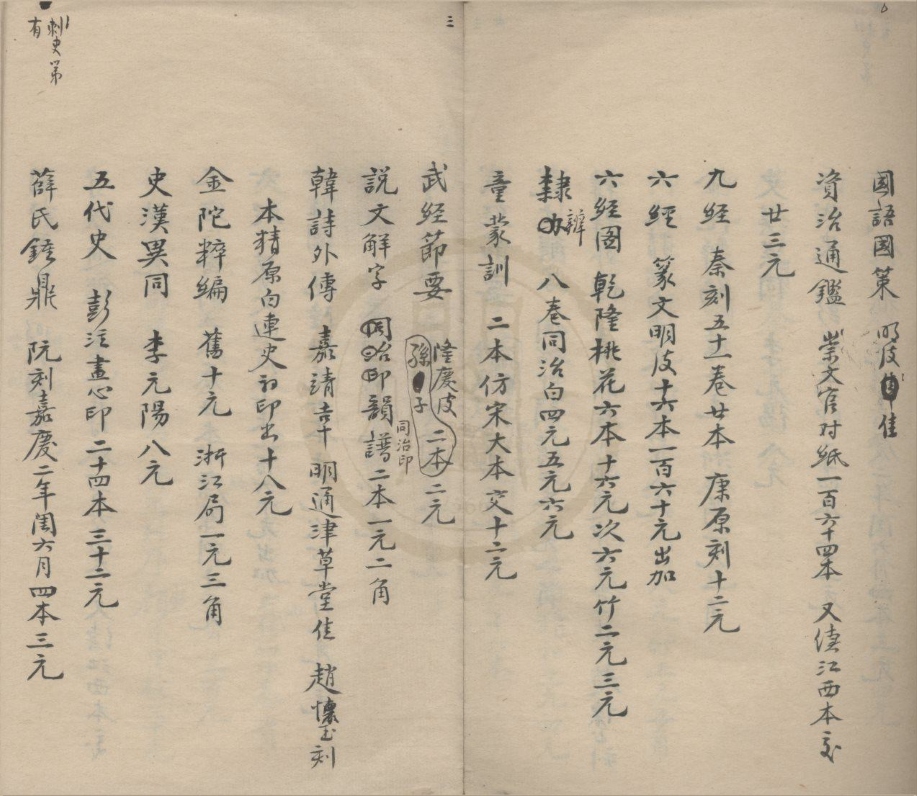 國語國策 明皮佳
資治通鑑 崇文官对紙一百六十四本 又僖江西本交
廿三元
九經 秦刻五十一卷廿本 康原刻十二元
六經 篆文明皮十六本一百六十元出加
六經圖 乾隆桃花六本十六元次六元竹二元三元
隸辨 八卷同治白四元五元六元
童蒙訓 二本仿宋大本交十二元
武經節要 隆慶皮二本二元
孫子
說文解字 同治印韻譜二本一元二角
同治印
韓詩外傳 嘉靖 明通津草堂佳 趙懷玉刻
本猜原白連史初印出十八元
金陀粹編 舊十元 浙江局一元三角
史漢異同 李元陽八元
五代史 彭注畫心印二十四本三十二元
薛氏鍾鼎 阮刻嘉慶二年閏六月四本三元
三
刺史第
有